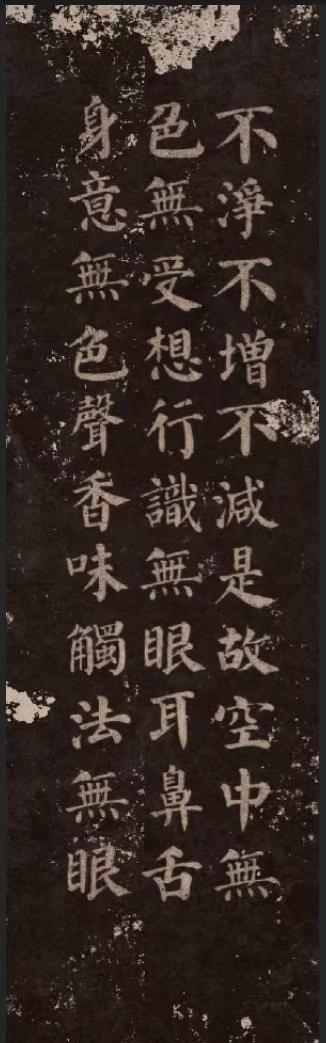 不淨不增不減是故空中無
色無受想行識無眼耳鼻舌
身意無色聲香味觸法無眼